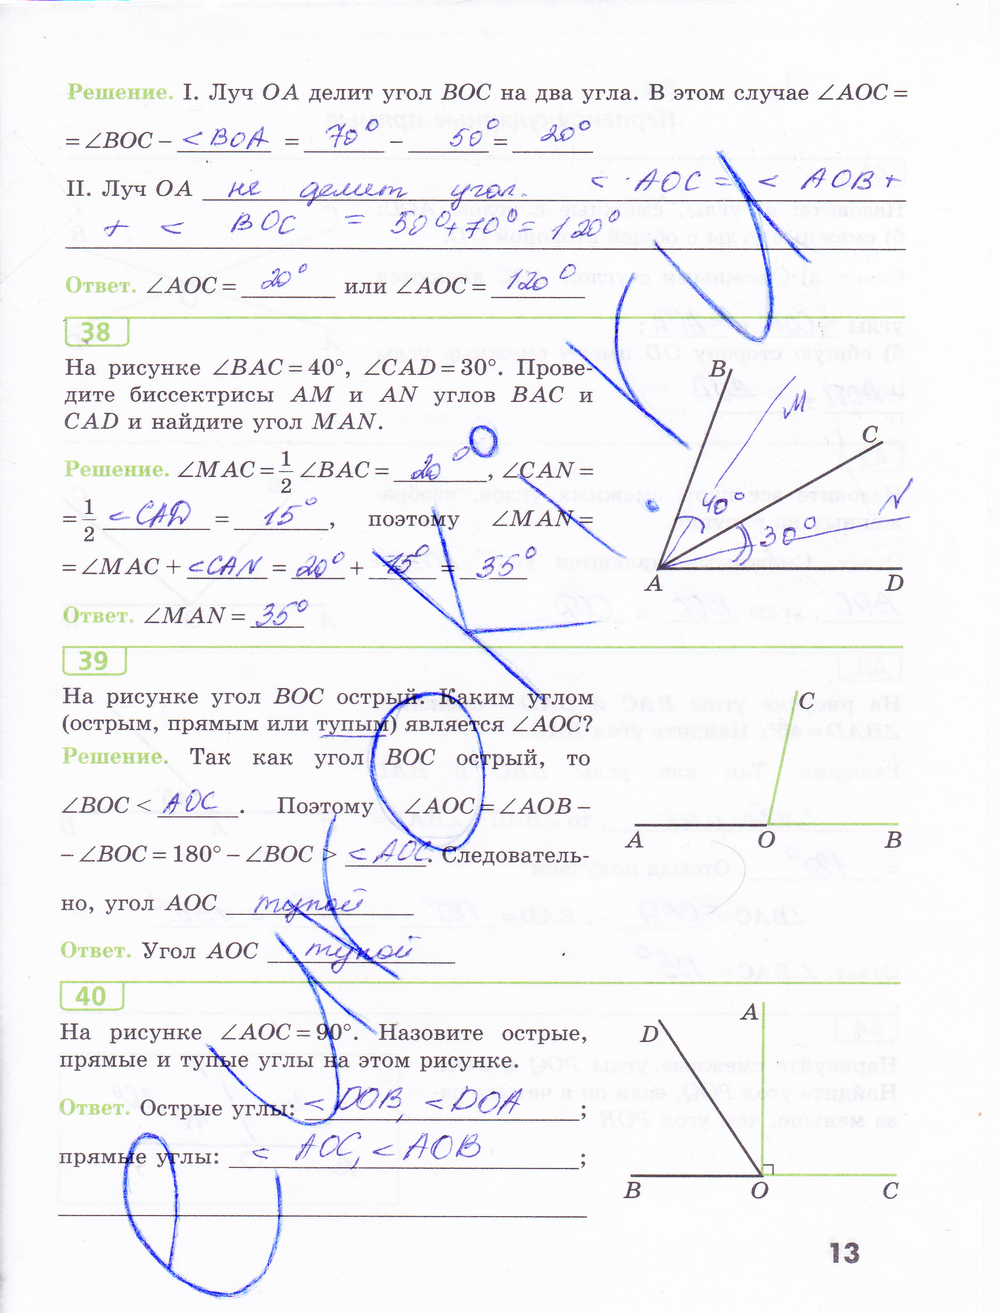 Решение. I. Луч OA делит угол BOC на два угла. В этом случае ∠AOC =
= ∠BOC − <BOA = 70° − 50° = 20°
II. Луч OA не делит угол. < AOC = < AOB +
+ < BOC = 50° + 70° = 120°
Ответ. ∠AOC = 20° или ∠AOC = 120°
38
На рисунке ∠BAC = 40°, ∠CAD = 30°. Прове-
дите биссектрисы AM и AN углов BAC и
CAD и найдите угол MAN.
Решение. ∠MAC = 1/2 ∠BAC = 20°, ∠CAN =
= 1/2 <CAD = 15°, поэтому ∠MAN =
= ∠MAC + <CAN = 20° + 15° = 35°
Ответ. ∠MAN = 35°
B
M
C
N
40°
30°
A
D
39
На рисунке угол BOC острый. Каким углом
(острым, прямым или тупым) является ∠AOC?
Решение. Так как угол BOC острый, то
∠BOC < AOC. Поэтому ∠AOC = ∠AOB −
− ∠BOC = 180° − ∠BOC > <AOC. Следователь-
но, угол AOC тупой
Ответ. Угол AOC тупой
C
A O B
40
На рисунке ∠AOC = 90°. Назовите острые,
прямые и тупые углы на этом рисунке.
Ответ. Острые углы: <DOB, <DOA ;
прямые углы: < AOC, < AOB ;
A
D
B O C
13